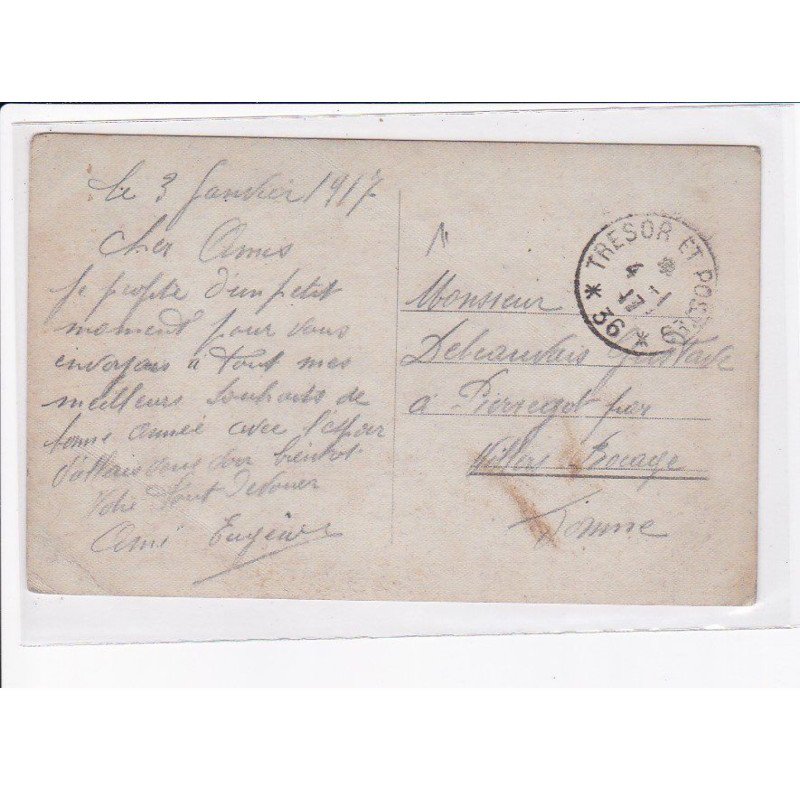 le 3 Janvier 1917
Cher Amis
Je profite d'un petit
moment pour vous
envoyais à tout mes
meilleurs Souhaits de
bonne année avec l'espoir
d'allais vous voir bientot
Votre tout Devouer
Ami Eugène
TRESOR ET POSTES
* 36 *
4 - 1
17
Monsieur
Gustave
à Pierregot par
Villers Bocage
Somme